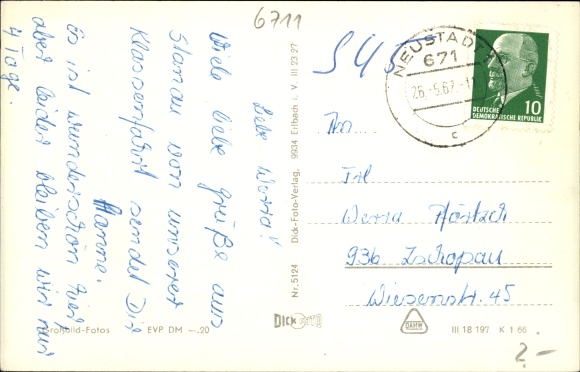 6711
Liebe Werra!
Viele liebe Grüße aus
von unserer
Klassenfahrt sendet Dir
Hanne.
Es ist wunderschön hier,
aber leider bleiben wir nur
4 Tage.
Großbild-Fotos EVP DM -.20
Nr. 5124 Dick-Foto-Verlag, 9934 Erlbach i. V. III 23 27
DICK FOTO
NEUSTADT
671
26.-5.67.-1
c
DEUTSCHE
DEMOKRATISCHE REPUBLIK
10
545
An...
Frl
Werra
936 Zschopau
Wiesenstr. 45
DAMW
III 18 197 K 1 66
2.-